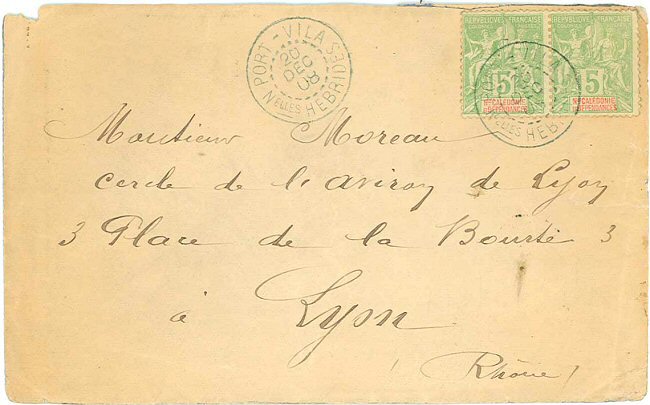 PORT-VILA
20
DEC
08
Nelles HEBRIDES
REPUBLIQUE FRANÇAISE REPUBLIQUE FRANÇAISE
5 5
Nle CALEDONIE Nle CALEDONIE
ET DEPENDANCES ET DEPENDANCES
VILA
Nelles HEBRI
Monsieur Moreau
cercle de l'aviron de Lyon
3 Place de la Bourse 3
à Lyon
(Rhône)